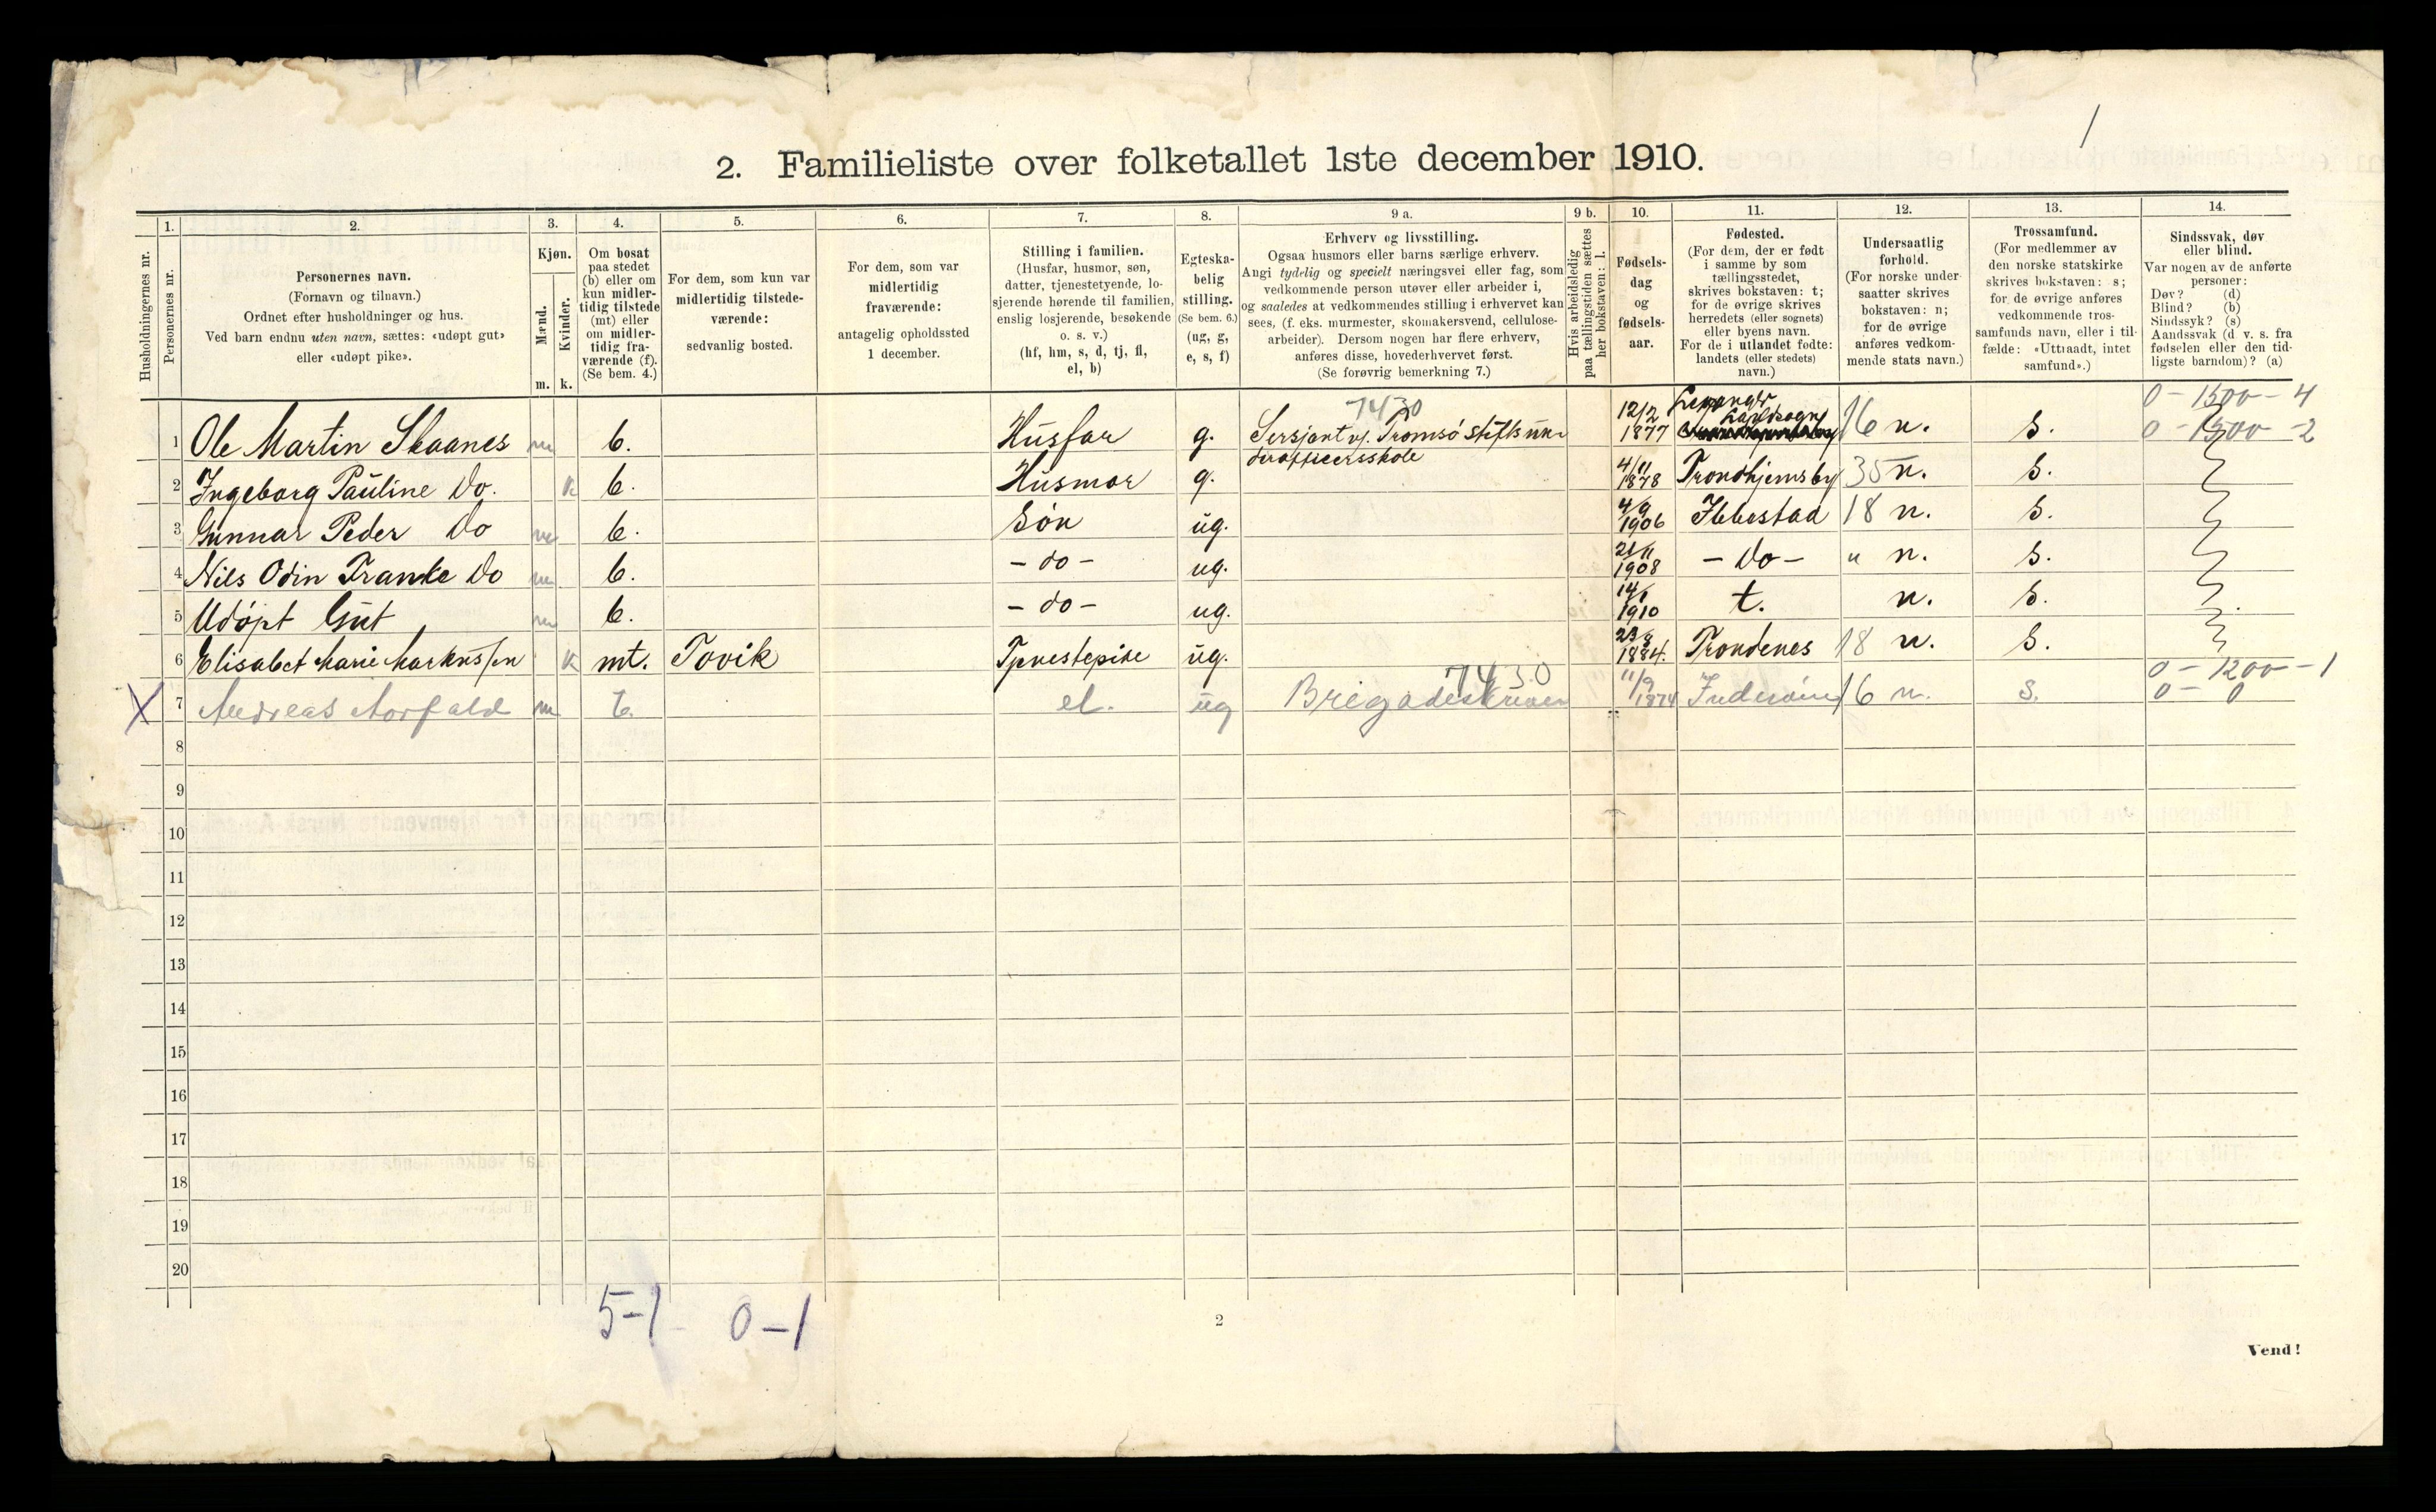 /
2. Familieliste over folketallet 1ste december 1910.
1. 2. 3. 4. 5. 6. 7. 8. 9 a. 9 b. 10. 11. 12. 13. 14.
Husholdningernes nr.
Personernes nr.
Personernes navn.
(Fornavn og tilnavn.)
Ordnet efter husholdninger og hus.
Ved barn endnu uten navn, sættes: «udøpt gut»
eller «udøpt pike».
Kjøn.
Mænd.
Kvinder.
m. k.
Om bosat
paa stedet
(b) eller om
kun midler-
tidig tilstede
(mt) eller
om midler-
tidig fra-
værende (f).
(Se bem. 4.)
For dem, som kun var
midlertidig tilstede-
værende:
sedvanlig bosted.
For dem, som var
midlertidig
fraværende:
antagelig opholdssted
1 december.
Stilling i familien.
(Husfar, husmor, søn,
datter, tjenestetyende, lo-
sjerende hørende til familien,
enslig losjerende, besøkende
o. s. v.)
(hf, hm, s, d, tj, fl,
el, b)
Egteska-
belig
stilling.
(Se bem. 6.)
(ug, g,
e, s, f)
Erhverv og livsstilling.
Ogsaa husmors eller barns særlige erhverv.
Angi tydelig og specielt næringsvei eller fag, som
vedkommende person utøver eller arbeider i,
og saaledes at vedkommendes stilling i erhvervet kan
sees, (f. eks. murmester, skomakersvend, cellulose-
arbeider). Dersom nogen har flere erhverv,
anføres disse, hovederhvervet først.
(Se forøvrig bemerkning 7.)
Hvis arbeidsledig
paa tællingstiden sættes
her bokstaven: l.
Fødsels-
dag
og
fødsels-
aar.
Fødested.
(For dem, der er født
i samme by som
tællingsstedet,
skrives bokstaven: t;
for de øvrige skrives
herredets (eller sognets)
eller byens navn.
For de i utlandet fødte:
landets (eller stedets)
navn.)
Undersaatlig
forhold.
(For norske under-
saatter skrives
bokstaven: n;
for de øvrige
anføres vedkom-
mende stats navn.)
Trossamfund.
(For medlemmer av
den norske statskirke
skrives bokstaven: s;
for de øvrige anføres
vedkommende tros-
samfunds navn, eller i til-
fælde: «Uttraadt, intet
samfund».)
Sindssvak, døv
eller blind.
Var nogen av de anførte
personer:
Døv? (d)
Blind? (b)
Sindssyk? (s)
Aandssvak (d. v. s. fra
fødselen eller den tid-
ligste barndom)? (a)
7430 0 - 1500 - 4
1 Ole Martin Skaanes m b. Husfar g. Sersjant v/ Tromsø stifts un- 12/2 1877 Levanger 16 n. s. 0 - 1500 - 2
derofficersskole
2 Ingeborg Pauline Do. k b. Husmor g. 4/11 1878 Trondhjemsby 35 n. s.
3 Gunnar Peder Do m b. Søn ug. 4/9 1906 Ibbestad 18 n. s.
4 Nils Odin Franke Do m b. - do - ug. 21/11 1908 - Do - " n. s.
5 Udøpt Gut m b. - do - ug. 1910 t. n. s.
6 Elisabet Marie Markussen k mt. Tovik Tjenestepike ug. 23/8 1884. Trondenes 18 n. s.
7430 0 - 1200 - 1
X 7 Andreas Aorfald m b. el. ug Brigadeskriver 11/9 1874 Inderøen 16 n. s. 0 - 0
8
9
10
11
12
13
14
15
16
17
18
19
20
5-1 0-1
2
Vend!